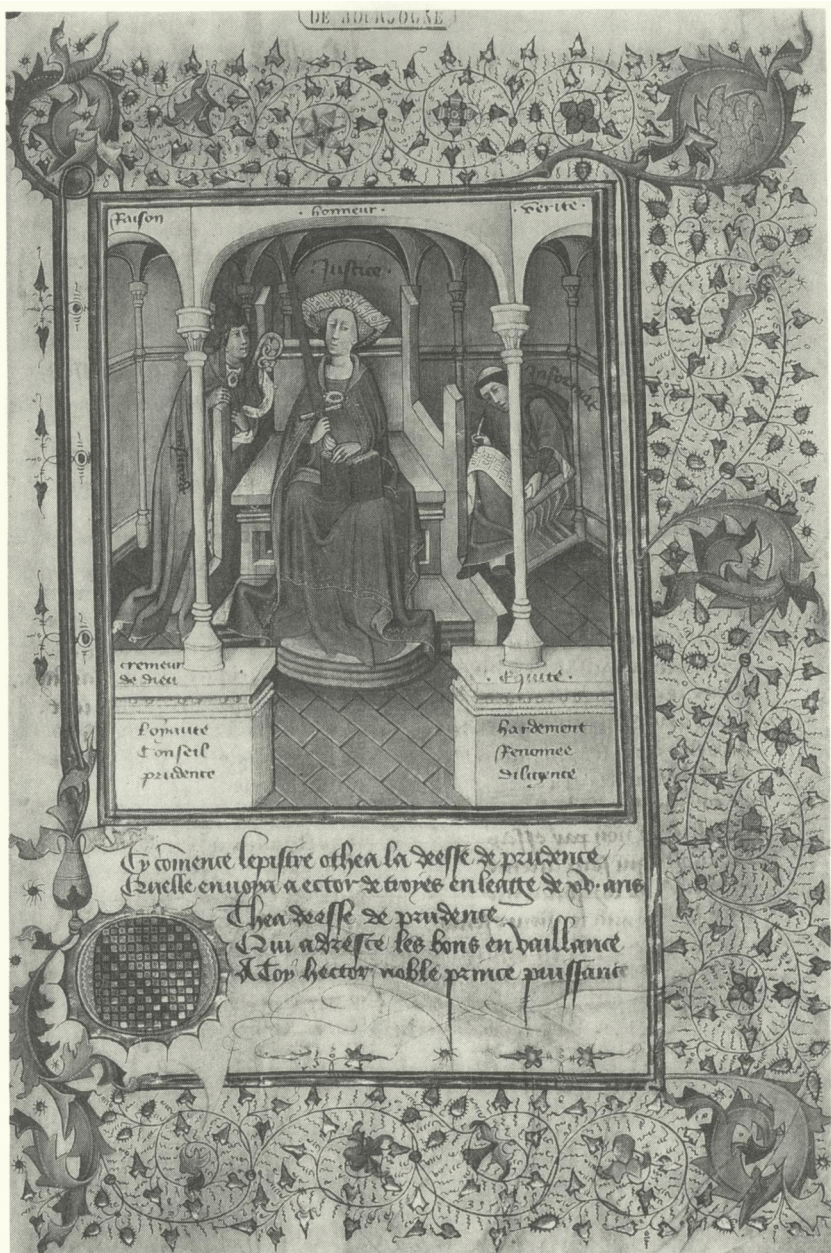 DE BOURGOGNE
Raison
· honneur ·
· verite ·
· Justice ·
Informat
cremeur
de dieu
· Equite ·
Loyaute
Conseil
prudence
hardement
Renomee
diligence
Cy comence lepistre othea la deesse de prudence
Quelle enuoya a ector de troyes en leage de xv· ans
Othea deesse de prudence
Qui adresce les bons en vaillance
A Toy hector noble prince puissant